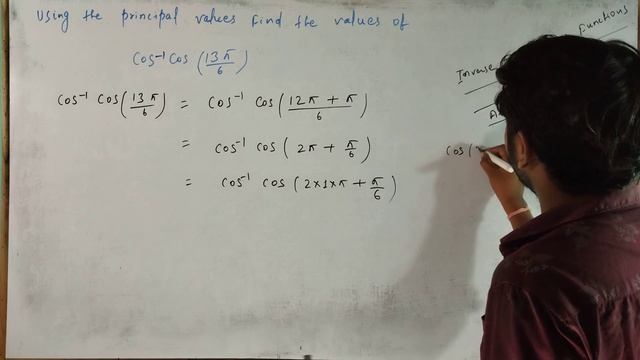 Using the principal values find the values of
Cos⁻¹ Cos (13π/6)
Cos⁻¹ Cos (13π/6) = Cos⁻¹ Cos (12π + π/6)
= Cos⁻¹ Cos (2π + π/6)
= Cos⁻¹ Cos (2×1×π + π/6)
Functions
Inverse
Cos (